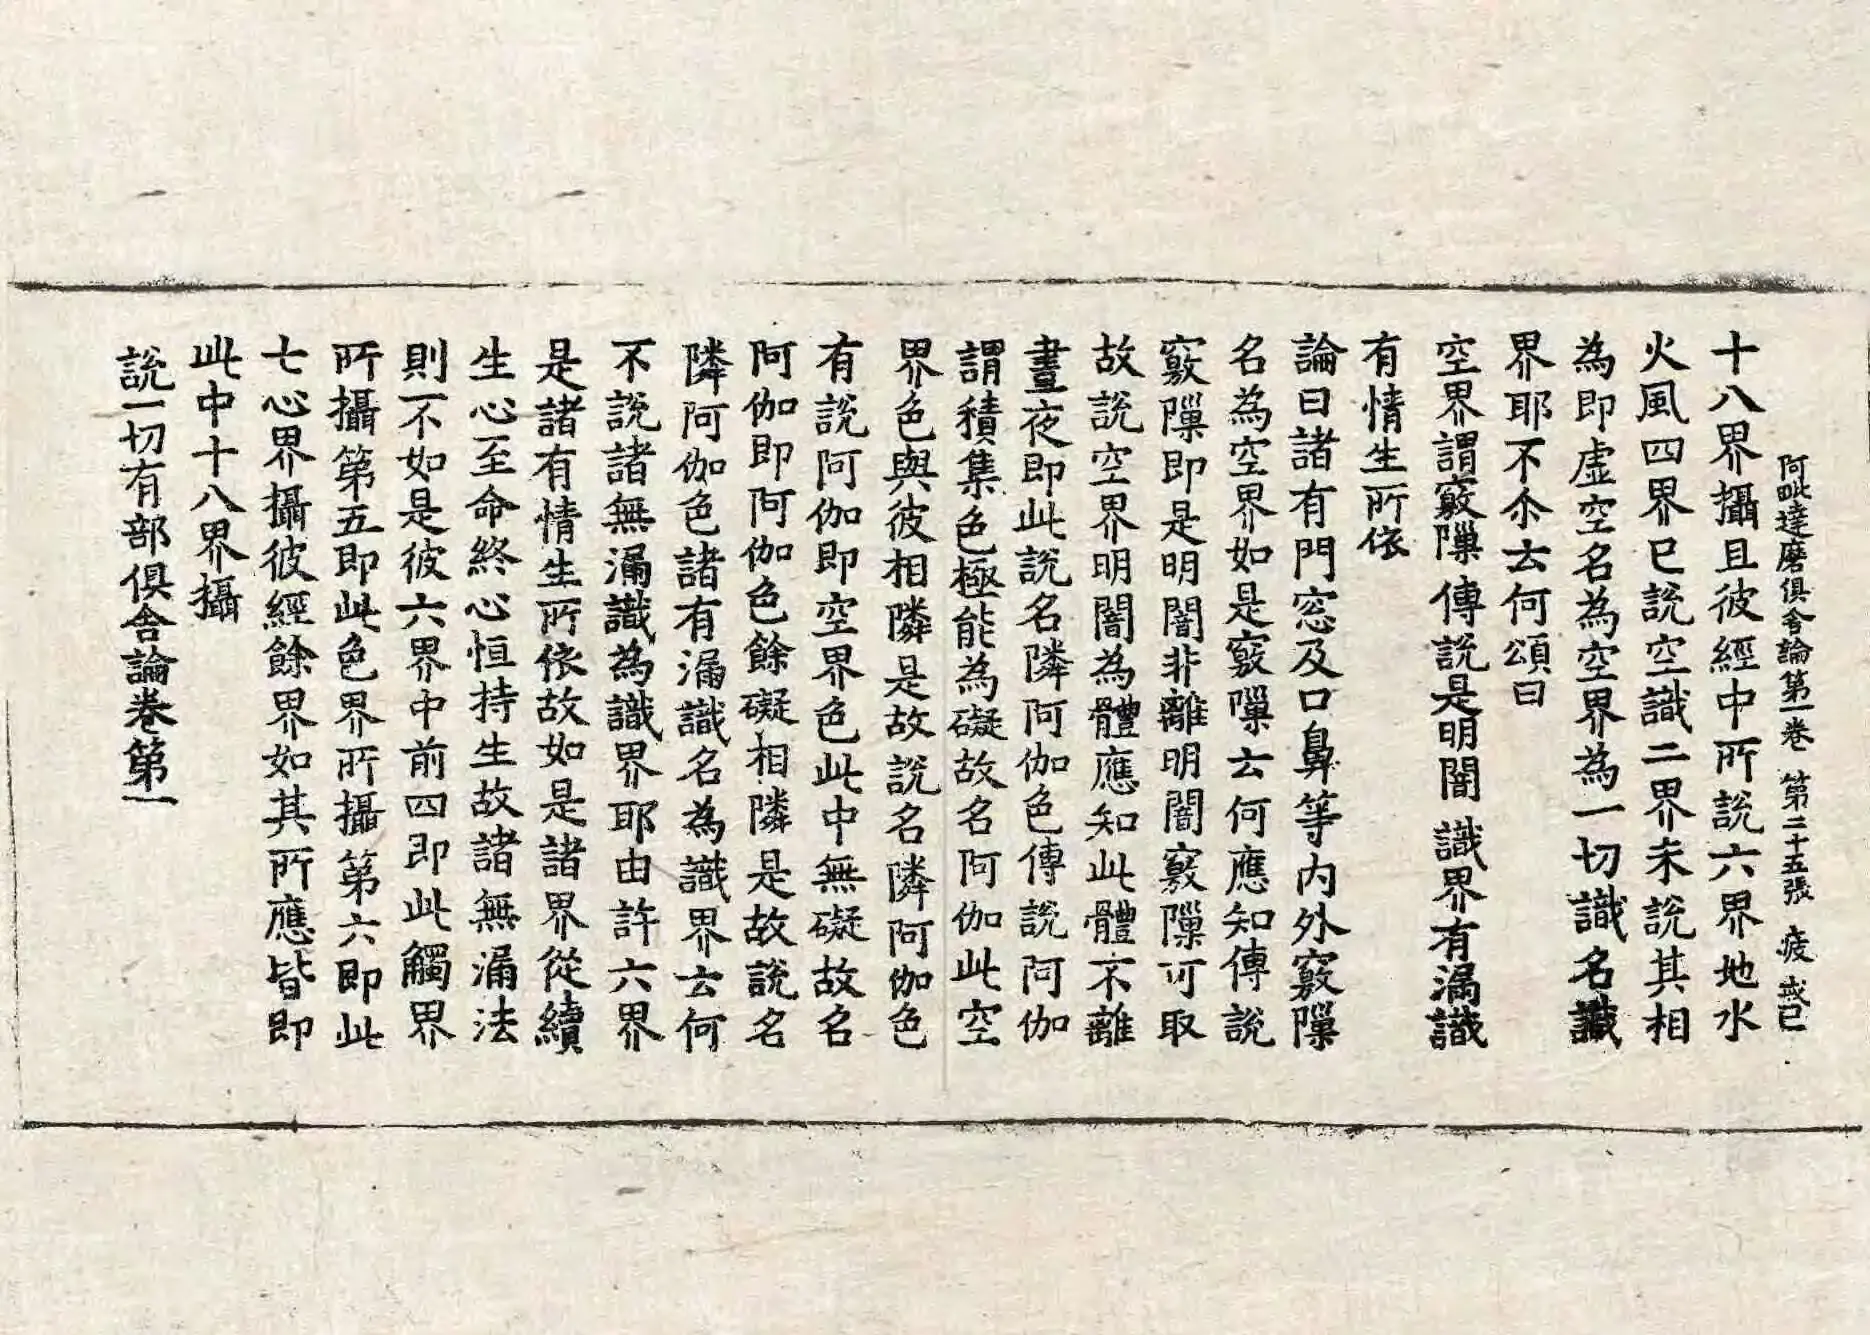 阿毗達磨俱舍論第一卷 第二十五張 疲 
十八界攝且彼經中所說六界地水
火風四界已說空識二界未說其相
為即虛空名為空界為一切識名識
界耶不尒云何頌曰
空界謂竅隟 傳說是明闇 識界有漏識
有情生所依
論曰諸有門窓及口鼻等內外竅隟
名為空界如是竅隟云何應知傳說
竅隟即是明闇非離明闇竅隟可取
故說空界明闇為體應知此體不離
晝夜即此說名隣阿伽色傳說阿伽
謂積集色極能為礙故名阿伽此空
界色與彼相隣是故說名隣阿伽色
有說阿伽即空界色此中無礙故名
阿伽即阿伽色餘礙相隣是故說名
隣阿伽色諸有漏識名為識界云何
不說諸無漏識為識界耶由許六界
是諸有情生所依故如是諸界從續
生心至命終心恒持生故諸無漏法
則不如是彼六界中前四即此觸界
所攝第五即此色界所攝第六即此
七心界攝彼經餘界如其所應皆即
此中十八界攝
說一切有部俱舍論卷第一